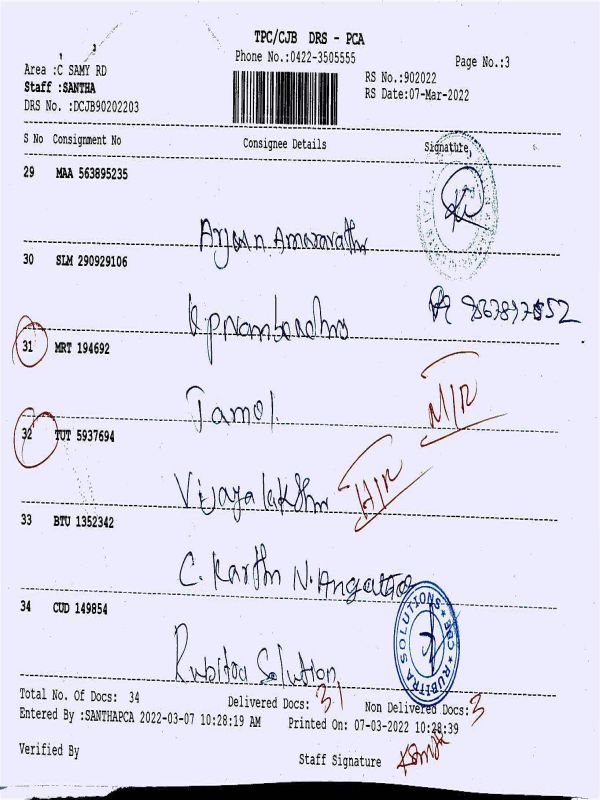 TPC/CJB DRS - PCA
Phone No.:0422-3505555 Page No.:3
Area :C SAMY RD RS No.:902022
Staff :SANTHA RS Date:07-Mar-2022
DRS No. :DCJB90202203
S No Consignment No Consignee Details Signature
29 MAA 563895235
Arjun Amaravathi
30 SLM 290929106
31 MRT 194692
Tamol M/R
32 TUT 5937694
Vijaya lakshmi
33 BTU 1352342
C. Karthi N.
34 CUD 149854
RUBITRA SOLUTIONS CBE
Rubitra Solution
Total No. Of Docs: 34 Delivered Docs: 31 Non Delivered Docs: 3
Entered By :SANTHAPCA 2022-03-07 10:28:19 AM Printed On: 07-03-2022 10:28:39
Verified By Staff Signature